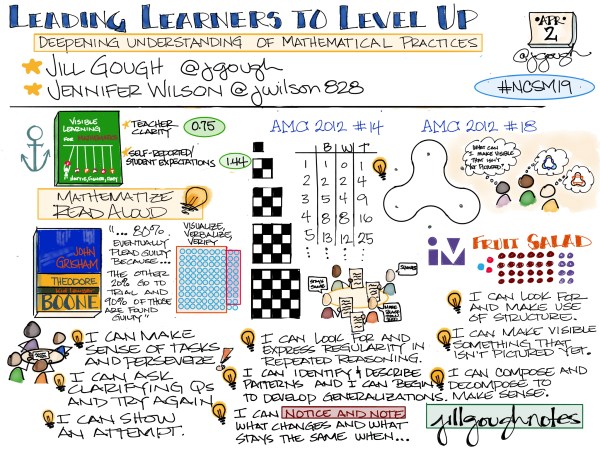 LEADING LEARNERS TO LEVEL UP
DEEPENING UNDERSTANDING OF MATHEMATICAL PRACTICES
JILL GOUGH @jgough
JENNIFER WILSON @jwilson828
APR
2
@jgough
#NCSM19
VISIBLE
LEARNING
FOR MATHEMATICS
HATTIE, FISHER, FREY
TEACHER
CLARITY
0.75
SELF-REPORTED/
STUDENT EXPECTATIONS
1.44
MATHEMATIZE
READ ALOUD
JOHN
GRISHAM
THEODORE
BOONE
"... 80%
EVENTUALLY
PLEAD GUILTY
BECAUSE...
THE OTHER
20% GO TO
TRIAL AND
90% OF THOSE
ARE FOUND
GUILTY"
VISUALIZE,
VERBALIZE,
VERIFY
AMC 2012 #14
B W T
1 1 0 1
2 2 2 4
3 5 4 9
4 8 8 16
5 13 12 25
AMC 2012 #18
WHAT CAN
I MAKE VISIBLE
THAT ISN'T
YET PICTURED?
IM
FRUIT SALAD
I CAN MAKE
SENSE OF TASKS
AND PERSEVERE.
I CAN ASK
CLARIFYING QS
AND TRY AGAIN
I CAN SHOW
AN ATTEMPT.
I CAN LOOK FOR AND
EXPRESS REGULARITY IN
REPEATED REASONING.
I CAN IDENTIFY & DESCRIBE
PATTERNS AND I CAN BEGIN
TO DEVELOP GENERALIZATIONS.
I CAN NOTICE AND NOTE
WHAT CHANGES AND WHAT
STAYS THE SAME WHEN...
I CAN LOOK FOR
AND MAKE USE
OF STRUCTURE.
I CAN MAKE VISIBLE
SOMETHING THAT
ISN'T PICTURED YET.
I CAN COMPOSE AND
DECOMPOSE TO
MAKE SENSE.
jillgoughnotes